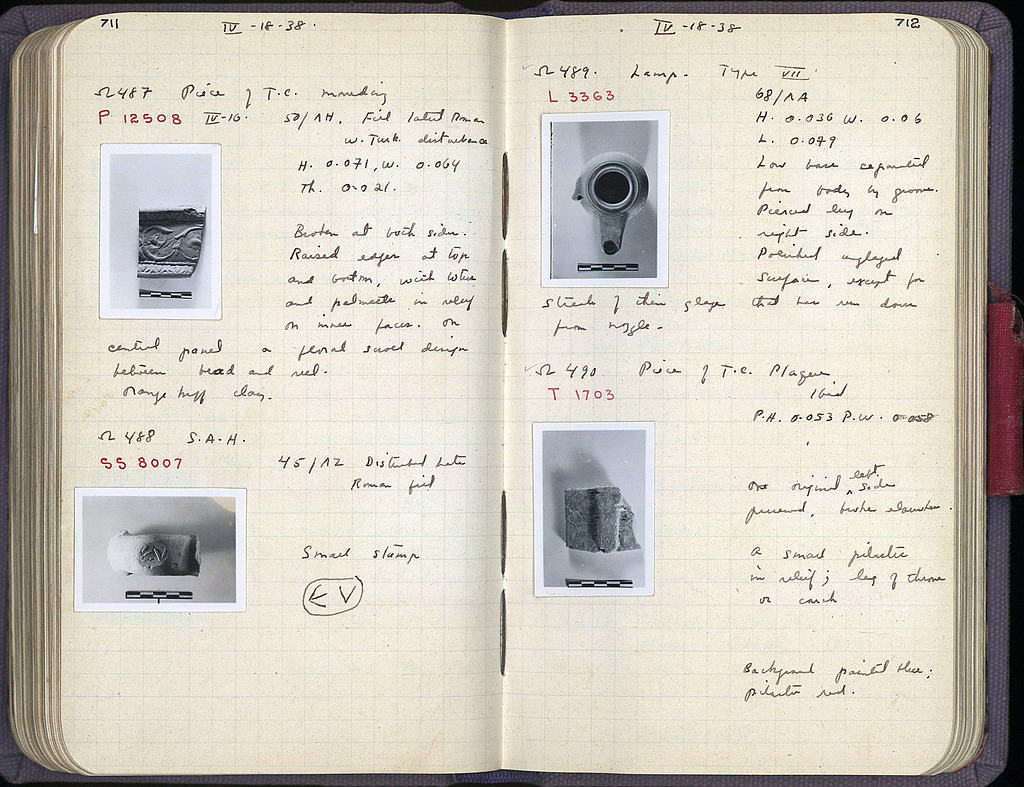 711
IV -18-38.
Ω 487 Piece of T.C. moulding
P 12508 IV-16. 50/ΛΗ. Fill late Roman
w. Turk. disturbance
H. 0.071, W. 0.064
Th. 0.021.
Broken at both sides.
Raised edges at top
and bottom, with lotus
and palmette in relief
on inner faces. On
central panel a floral scroll design
between bead and reel.
Orange buff clay.
Ω 488 S.A.H.
SS 8007 45/ΛΖ Disturbed late
Roman fill
Small stamp
EV
712
IV -18-38
Ω 489. Lamp. Type VII
L 3363 68/ΛΑ
H. 0.036 W. 0.06
L. 0.079
Low base separated
from body by groove.
Pierced lug on
right side.
Polished unglazed
surface, except for
streak of thin glaze that has run down
from nozzle.
Ω 490. Piece of T.C. Plaque
T 1703 Ibid
P.H. 0.053 P.W. 0.058
One original left side
preserved, broken elsewhere.
A small pilaster
in relief; leg of throne
or couch
Background painted blue;
pilaster red.